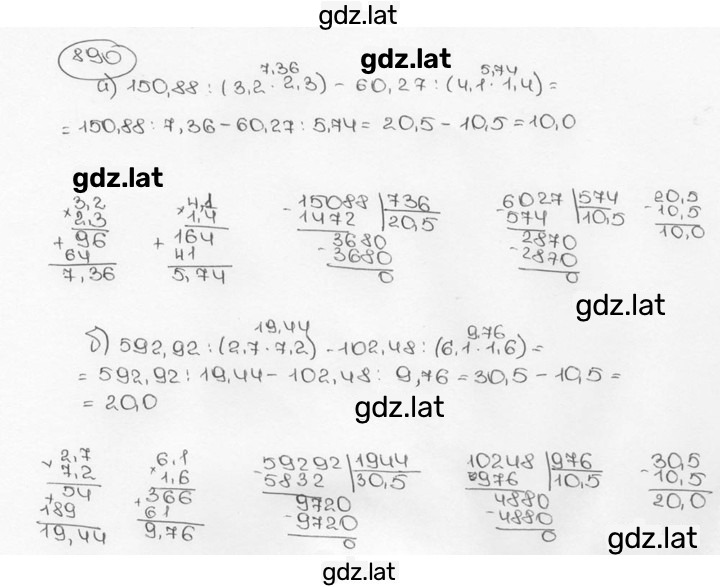 gdz.lat
890
gdz.lat
7,36 5,74
а) 150,88 : (3,2 · 2,3) - 60,27 : (4,1 · 1,4) =
= 150,88 : 7,36 - 60,27 : 5,74 = 20,5 - 10,5 = 10,0
gdz.lat
3,2 4,1 15088 736 6027 574 20,5
× 2,3 × 1,4 - 1472 20,5 - 574 10,5 - 10,5
+ 96 + 164 3680 2870 10,0
64 41 - 3680 - 2870
7,36 5,74 0 0
gdz.lat
19,44 9,76
б) 592,92 : (2,7 · 7,2) - 102,48 : (6,1 · 1,6) =
= 592,92 : 19,44 - 102,48 : 9,76 = 30,5 - 10,5 =
= 20,0
gdz.lat
2,7 6,1 59292 1944 10248 976 30,5
× 7,2 × 1,6 - 5832 30,5 - 976 10,5 - 10,5
+ 54 + 366 9720 4880 20,0
189 61 - 9720 - 4880
19,44 9,76 0 0
gdz.lat
gdz.lat